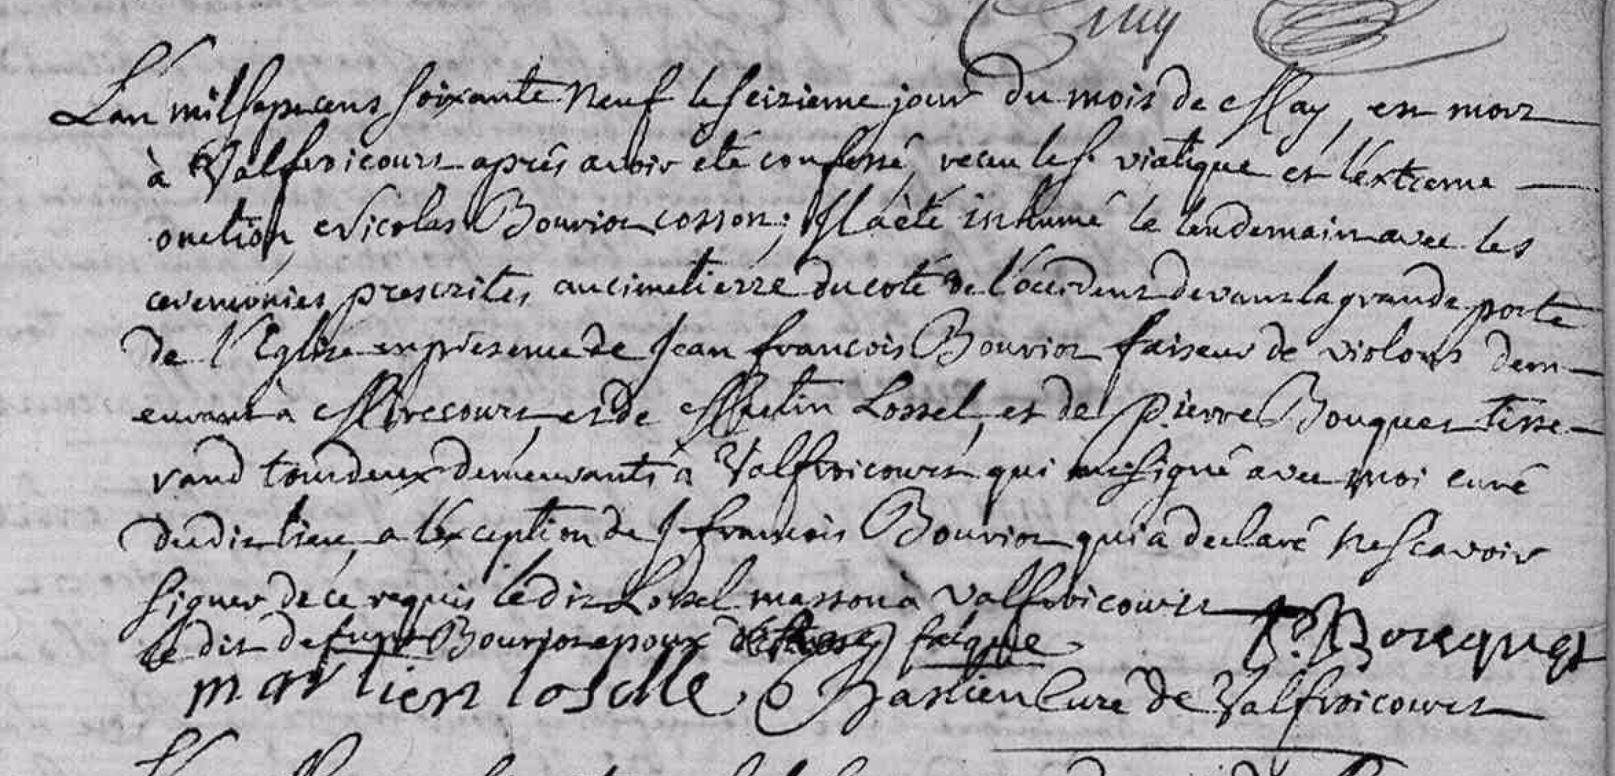 Cuny
L'an mil sept cens soixante neuf le seizieme jour du mois de May, est mort
à Valfroicourt après avoir eté confessé, receu le St. viatique et l'extreme
onction, Nicolas Bourior cosson; Il a èté inhumé le lendemain avec les
ceremonies prescrites, au cimetierre du coté de l'occident devant la grande porte
de l'Eglise en presence de Jean françois Bourior faiseur de violons dem-
eurant à Mirecourt, et de Martin Lossel, et de pierre Bouquet tisse-
rand tous deux demeurants à Valfroicourt qui ont signé avec moi curé
dudit lieu, a l'exception de J françois Bourior qui a declaré ne scavoir
signer de ce requis ledit Lossel masson à Valfroicourt
le dit defunt Bourior epoux falque
P. Boucquet
martien loselle. C Bastien Curé de Valfroicourt